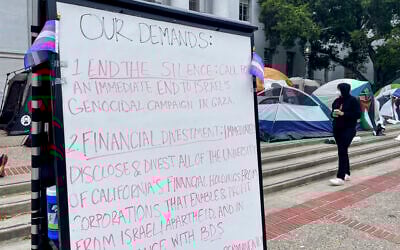 OUR DEMANDS:
1 END THE SILENCE: CALL FOR
AN IMMEDIATE END TO ISRAEL'S
GENOCIDAL CAMPAIGN IN GAZA.
2 FINANCIAL DIVESTMENT: IMMEDIATELY
DISCLOSE & DIVEST ALL OF THE UNIVERSITY
OF CALIFORNIA'S FINANCIAL HOLDINGS FROM
CORPORATIONS THAT ENABLE & PROFIT
FROM ISRAELI APARTHEID, AND IN
WITH BDS